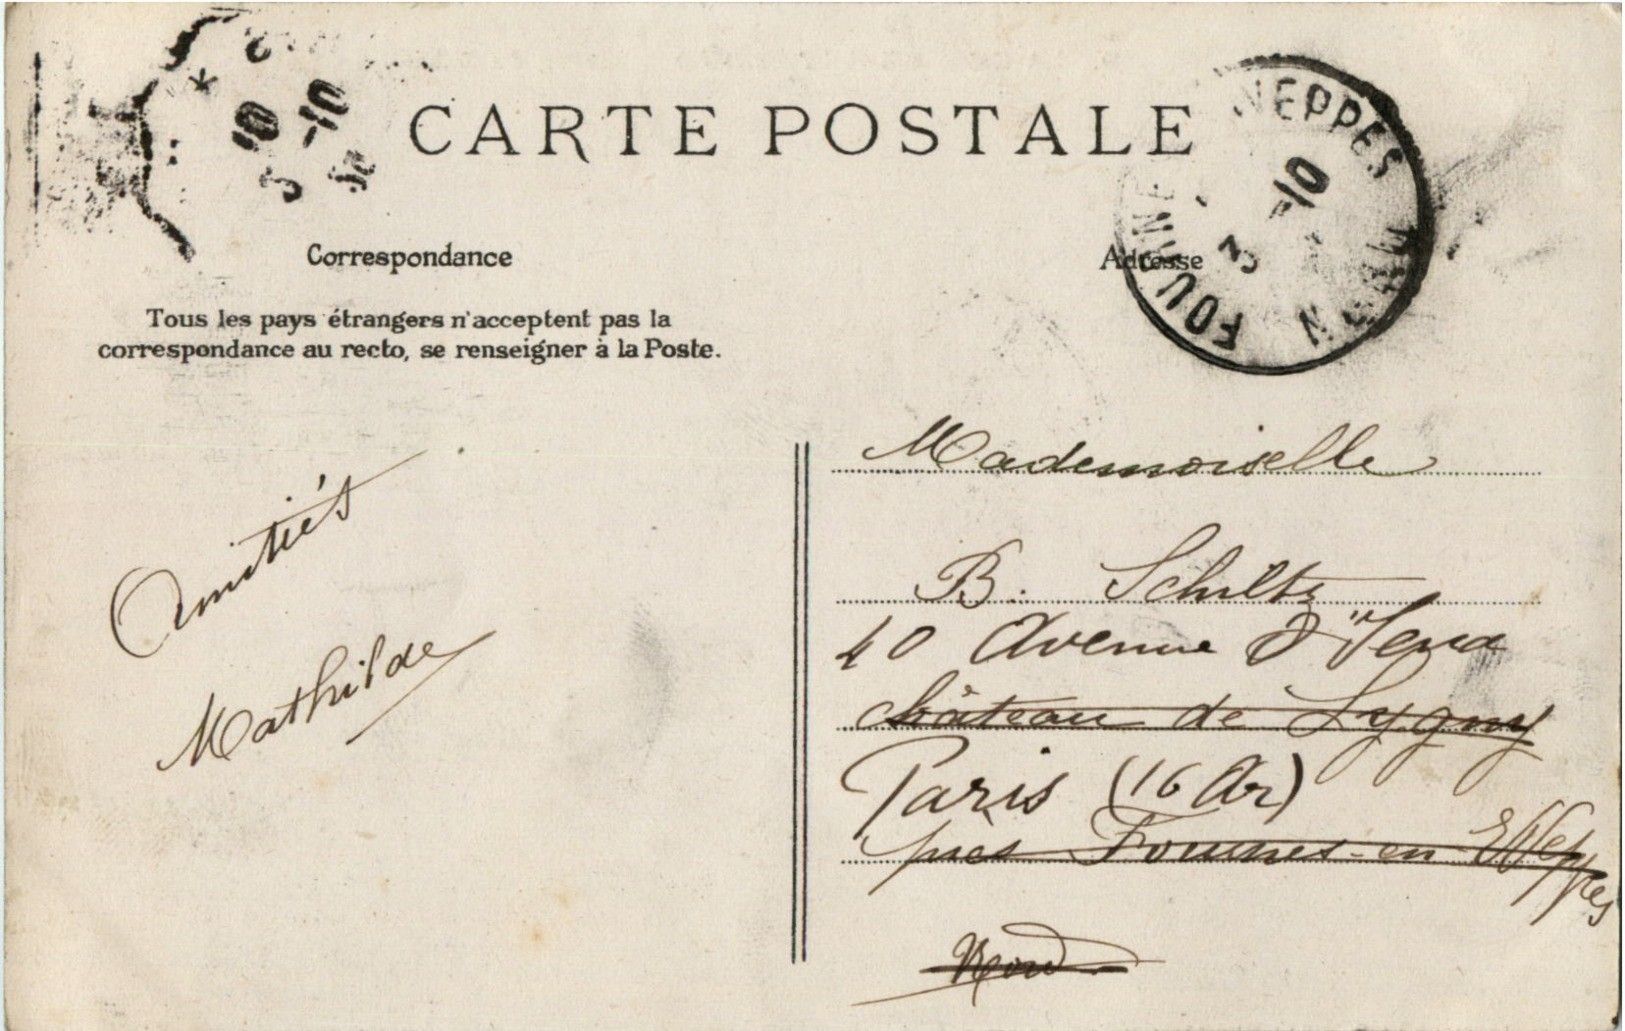 CARTE POSTALE
Correspondance
Adresse
Tous les pays étrangers n'acceptent pas la
correspondance au recto, se renseigner à la Poste.
Amitiés
Mathilde
Mademoiselle
B. Schiltz
40 Avenue d'Iena
Château de Lygny
Paris (16 Ar)
près Fournes-en-Weppes
Nord
WEPPES
10
10
-10
3
-10